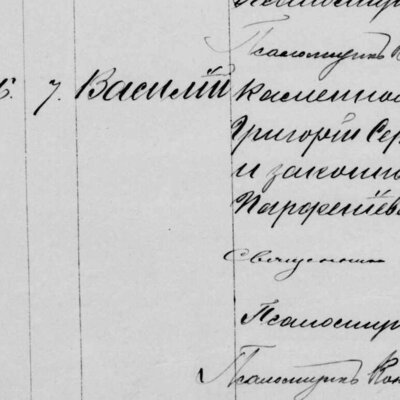 Псаломщикъ К
6. 7. Василій Каменно
Григорій Сер
и законно
Парфеніева
Священникъ
Псаломщи
Псаломщикъ Кон